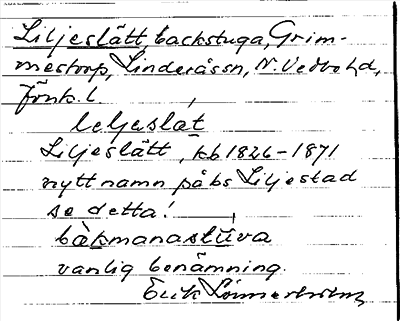 Liljeslätt, backstuga, Grim-
mestorp, Linderåssn, N. Vedbo hd,
Jönk. l.
leljeslat
Liljeslätt, kb 1826-1871
nytt namn på bs Liljestad
se detta!
bàkmanastūva
vanlig benämning.
Erik